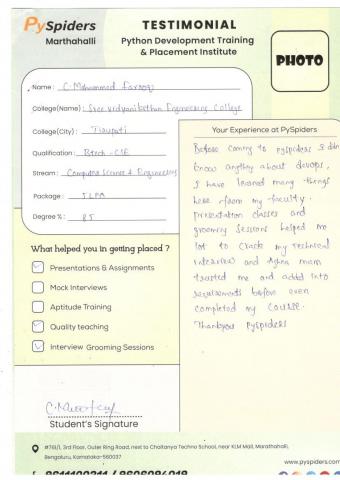 PySpiders
Marthahalli
TESTIMONIAL
Python Development Training
& Placement Institute
PHOTO
Name : C. Mohammed Farooq
College(Name) : Sree Vidyanikethan Engineering College
College(City) : Tirupati
Qualification : Btech - CSE
Stream : Computer Science & Engineering
Package : 7 LPA
Degree % : 85
Your Experience at PySpiders
Before coming to pyspiders I didn
know anything about devops,
I have learned many things
here from my faculty.
presentation classes and
grooming sessions helped me
lot to crack my technical
interview and mam
trusted me and added into
requirements before even
completed my course.
Thankyou pyspiders
What helped you in getting placed ?
Presentations & Assignments
Mock Interviews
Aptitude Training
Quality teaching
Interview Grooming Sessions
Student's Signature
#761/1, 3rd Floor, Outer Ring Road, next to Chaitanya Techno School, near KLM Mall, Marathahalli,
Bengaluru, Karnataka-560037
www.pyspiders.com